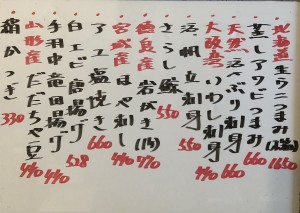 北海道 生ウニつまみ 1650
蒸しアワビつまみ 660
天然 活〆ぶり刺身 660
大阪産 いわし刺身 440
活 帆立刺身 550
さらし鯨 550
徳島産 岩がき(1ケ) 770
宮城産 ほや刺し 440
アユ塩焼き 660
白エビ唐揚げ 528
手羽中竜田揚げ 440
山形産 だだちゃ豆 440
絹かつぎ 330